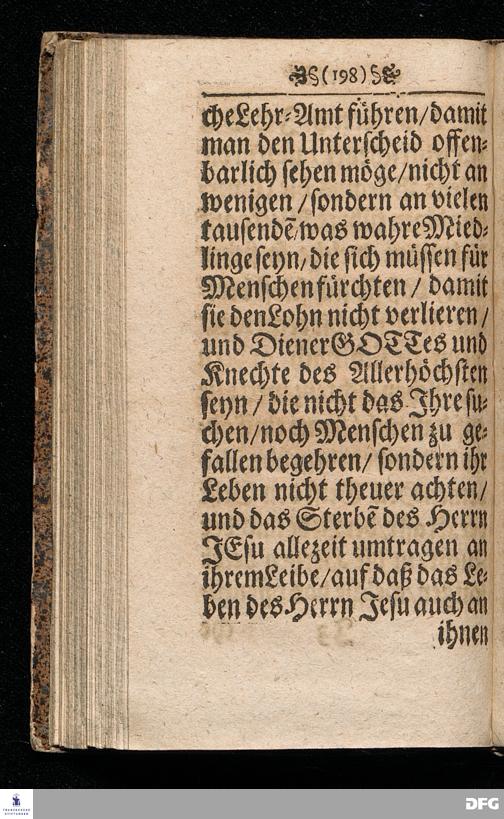 (198)
che Lehr-Amt führen/damit
man den Unterscheid offen-
barlich sehen möge/nicht an
wenigen / sondern an vielen
tausendẽ/was wahre Mied-
linge seyn/die sich müssen für
Menschen fürchten / damit
sie den Lohn nicht verlieren /
und Diener GOTTes und
Knechte des Allerhöchsten
seyn / die nicht das Ihre su-
chen/noch Menschen zu ge-
fallen begehren/ sondern ihr
Leben nicht theuer achten/
und das Sterbẽ des Herrn
JEsu allezeit umtragen an
ihrem Leibe/auf daß das Le-
ben des Herrn Jesu auch an
ihnen
FRANCKESCHE
STIFTUNGEN
DFG